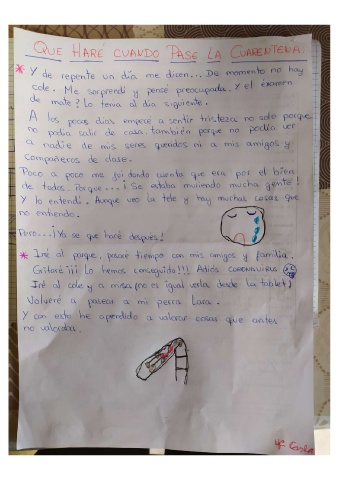 QUE HARÉ CUANDO PASE LA CUARENTENA.
* Y de repente un día me dicen... De momento no hay
cole. Me sorprendí y pensé preocupada. Y el éxamen
de mate? Lo tenia al día siguiente.
A los pocos días empecé a sentir tristeza no solo porque
no podía salir de casa también porque no podía ver
a nadie de mis seres queridos ni a mis amigos y
compañeros de clase.
Poco a poco me foi dando cuenta que era por el bien
de todos. ¡Porque...! Se estaba muriendo mucha gente!
Y lo entendí. Aunque veo la tele y hay muchas cosas que
no entiendo.
Pero...¡Ya se que haré después!
* Iré al parque, pasaré tiempo con mis amigos y familia.
Gritaré ¡¡¡ Lo hemos conseguido!!! Adiós CORONAVIRUS
Iré al cole y a misa (no es igual verla desde la tablet)
Volveré a pasear a mi perra Lara.
Y con esto he aprendido a valorar cosas que antes
no valoraba.
4º Carla